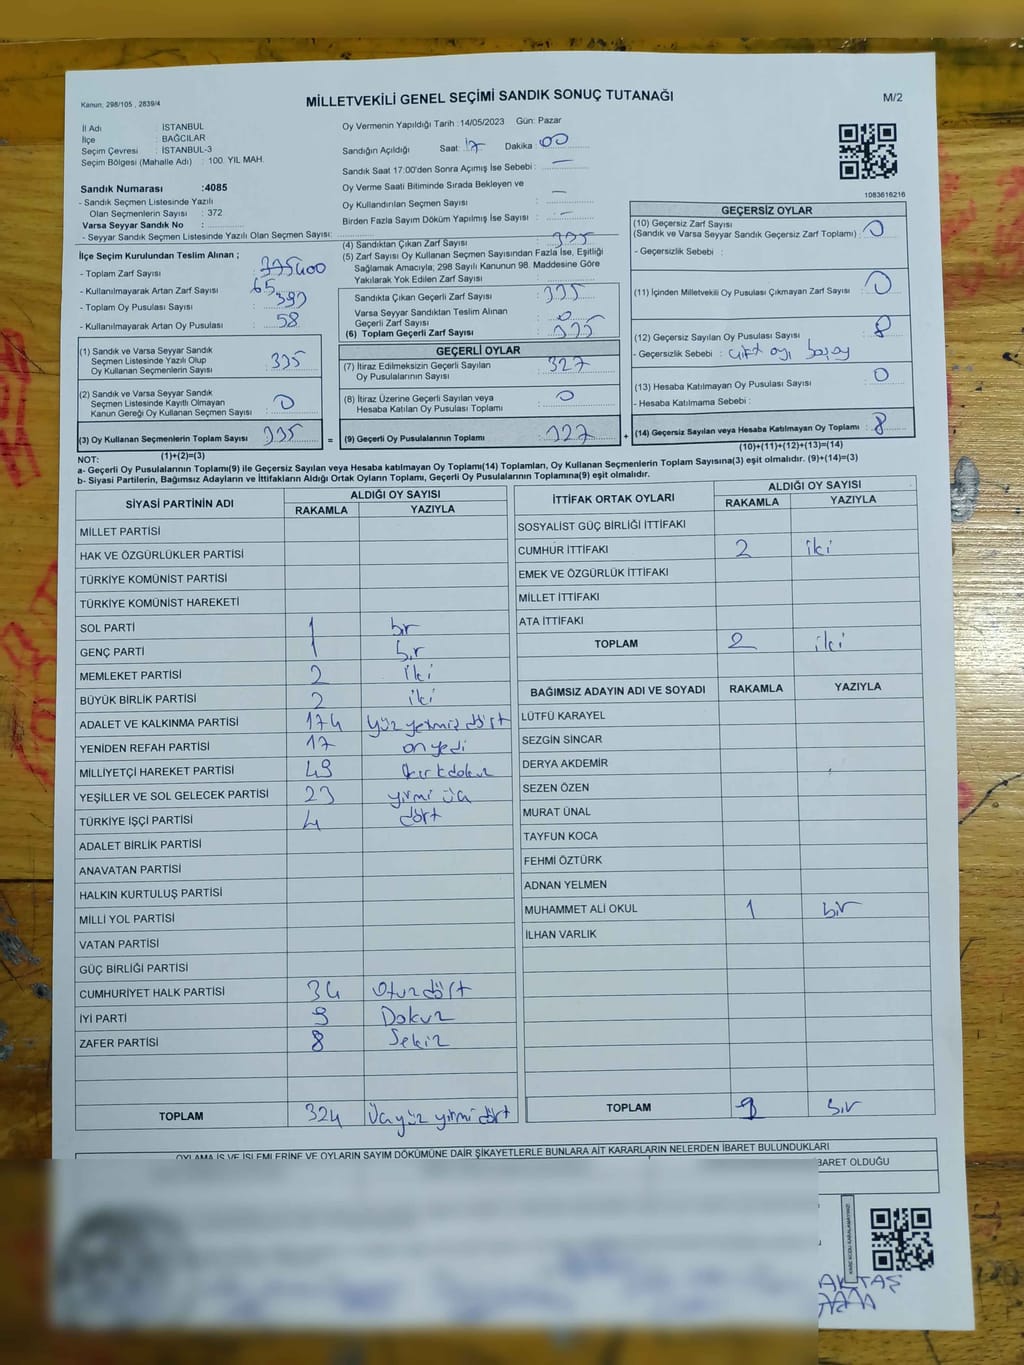 Kanun; 298/105 , 2839/4
MİLLETVEKİLİ GENEL SEÇİMİ SANDIK SONUÇ TUTANAĞI
M/2
İl Adı : İSTANBUL
İlçe : BAĞCILAR
Seçim Çevresi : İSTANBUL-3
Seçim Bölgesi (Mahalle Adı) : 100. YIL MAH.
Sandık Numarası :4085
- Sandık Seçmen Listesinde Yazılı
Olan Seçmenlerin Sayısı : 372
Varsa Seyyar Sandık No :
- Seyyar Sandık Seçmen Listesinde Yazılı Olan Seçmen Sayısı:
Oy Vermenin Yapıldığı Tarih :14/05/2023 Gün: Pazar
Sandığın Açıldığı Saat: 17 Dakika : 00
Sandık Saat 17:00'den Sonra Açımış İse Sebebi : —
Oy Verme Saati Bitiminde Sırada Bekleyen ve
Oy Kullandırılan Seçmen Sayısı : —
Birden Fazla Sayım Döküm Yapılmış İse Sayısı : —
1083616216
İlçe Seçim Kurulundan Teslim Alınan ;
- Toplam Zarf Sayısı : 400
- Kullanılmayarak Artan Zarf Sayısı : 65
- Toplam Oy Pusulası Sayısı : 393
- Kullanılmayarak Artan Oy Pusulası : 58
(1) Sandık ve Varsa Seyyar Sandık
Seçmen Listesinde Yazılı Olup
Oy Kullanan Seçmenlerin Sayısı : 335
(2) Sandık ve Varsa Seyyar Sandık
Seçmen Listesinde Kayıtlı Olmayan
Kanun Gereği Oy Kullanan Seçmen Sayısı : 0
(3) Oy Kullanan Seçmenlerin Toplam Sayısı : 335
(1)+(2)=(3)
(4) Sandıktan Çıkan Zarf Sayısı : 335
(5) Zarf Sayısı Oy Kullanan Seçmen Sayısından Fazla İse, Eşitliği
Sağlamak Amacıyla; 298 Sayılı Kanunun 98. Maddesine Göre
Yakılarak Yok Edilen Zarf Sayısı :
Sandıkta Çıkan Geçerli Zarf Sayısı : 335
Varsa Seyyar Sandıktan Teslim Alınan
Geçerli Zarf Sayısı : 0
(6) Toplam Geçerli Zarf Sayısı : 335
GEÇERLİ OYLAR
(7) İtiraz Edilmeksizin Geçerli Sayılan
Oy Pusulalarının Sayısı : 327
(8) İtiraz Üzerine Geçerli Sayılan veya
Hesaba Katılan Oy Pusulası Toplamı : 0
= (9) Geçerli Oy Pusulalarının Toplamı : 327 +
GEÇERSİZ OYLAR
(10) Geçersiz Zarf Sayısı
(Sandık ve Varsa Seyyar Sandık Geçersiz Zarf Toplamı) : 0
- Geçersizlik Sebebi :
(11) İçinden Milletvekili Oy Pusulası Çıkmayan Zarf Sayısı : 0
(12) Geçersiz Sayılan Oy Pusulası Sayısı : 8
- Geçersizlik Sebebi : çift oy, boş oy
(13) Hesaba Katılmayan Oy Pusulası Sayısı : 0
- Hesaba Katılmama Sebebi :
(14) Geçersiz Sayılan veya Hesaba Katılmayan Oy Toplamı : 8
(10)+(11)+(12)+(13)=(14)
NOT:
a- Geçerli Oy Pusulalarının Toplamı(9) ile Geçersiz Sayılan veya Hesaba katılmayan Oy Toplamı(14) Toplamları, Oy Kullanan Seçmenlerin Toplam Sayısına(3) eşit olmalıdır. (9)+(14)=(3)
b- Siyasi Partilerin, Bağımsız Adayların ve İttifakların Aldığı Ortak Oyların Toplamı, Geçerli Oy Pusulalarının Toplamına(9) eşit olmalıdır.
SİYASİ PARTİNİN ADI ALDIĞI OY SAYISI
RAKAMLA YAZIYLA
MİLLET PARTİSİ
HAK VE ÖZGÜRLÜKLER PARTİSİ
TÜRKİYE KOMÜNİST PARTİSİ
TÜRKİYE KOMÜNİST HAREKETİ
SOL PARTİ 1 bir
GENÇ PARTİ 1 bir
MEMLEKET PARTİSİ 2 iki
BÜYÜK BİRLİK PARTİSİ 2 iki
ADALET VE KALKINMA PARTİSİ 174 yüz yetmiş dört
YENİDEN REFAH PARTİSİ 17 on yedi
MİLLİYETÇİ HAREKET PARTİSİ 49 kırk dokuz
YEŞİLLER VE SOL GELECEK PARTİSİ 23 yirmi üç
TÜRKİYE İŞÇİ PARTİSİ 4 dört
ADALET BİRLİK PARTİSİ
ANAVATAN PARTİSİ
HALKIN KURTULUŞ PARTİSİ
MİLLİ YOL PARTİSİ
VATAN PARTİSİ
GÜÇ BİRLİĞİ PARTİSİ
CUMHURİYET HALK PARTİSİ 34 otuz dört
İYİ PARTİ 9 Dokuz
ZAFER PARTİSİ 8 Sekiz
TOPLAM 324 Üçyüz yirmi dört
İTTİFAK ORTAK OYLARI ALDIĞI OY SAYISI
RAKAMLA YAZIYLA
SOSYALİST GÜÇ BİRLİĞİ İTTİFAKI
CUMHUR İTTİFAKI 2 iki
EMEK VE ÖZGÜRLÜK İTTİFAKI
MİLLET İTTİFAKI
ATA İTTİFAKI
TOPLAM 2 iki
BAĞIMSIZ ADAYIN ADI VE SOYADI RAKAMLA YAZIYLA
LÜTFÜ KARAYEL
SEZGİN SİNCAR
DERYA AKDEMİR
SEZEN ÖZEN
MURAT ÜNAL
TAYFUN KOCA
FEHMİ ÖZTÜRK
ADNAN YELMEN
MUHAMMET ALİ OKUL 1 bir
İLHAN VARLIK
TOPLAM 1 bir
OYLAMA İŞ VE İŞLEMLERİNE VE OYLARIN SAYIM DÖKÜMÜNE DAİR ŞİKAYETLERLE BUNLARA AİT KARARLARIN NELERDEN İBARET BULUNDUKLARI
BARET OLDUĞU
AKTAŞ